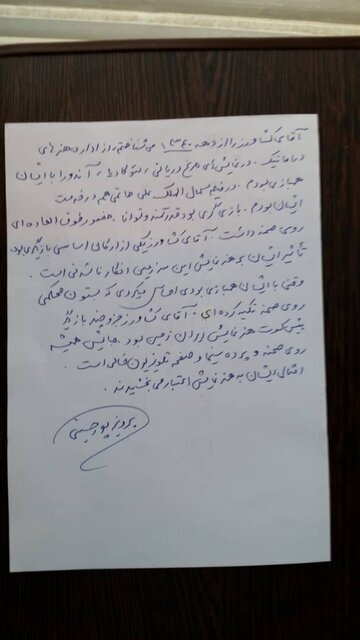 آقای کشاورز را از دهه ۱۳۴۰ می شناختم، از اداره هنرهای
دراماتیک. در نمایش های مرغ دریایی، لئوکادیا، آندورا با ایشان
همبازی بودم. در فیلم کمال الملک علی حاتمی هم در خدمت
ایشان بودم. بازیگری بود قدرتمند و توانا. حضور فوق العاده ای
روی صحنه داشت. آقای کشاورز یکی از ارکان اساسی بازیگری بود.
تأثیر ایشان بر هنر نمایش این سرزمین انکار ناشدنی است.
وقتی با ایشان همبازی بودی احساس میکردی که بستون محکمی
روی صحنه تکیه کرده ای. آقای کشاورز جزو چند بازیگر
پیشکسوت هنر نمایش ایران زمین بود. جایش همیشه
روی صحنه و پرده سینما و صفحه تلویزیون خالی است.
امثال ایشان به هنر نمایش اعتبار می بخشیدند.
پرویز پورحسینی